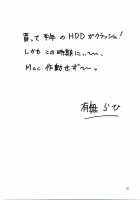 買って半年のHDDがクラッシュ!
しかもこの時期にぃ～、
Mac作動せず～。
有無らひ